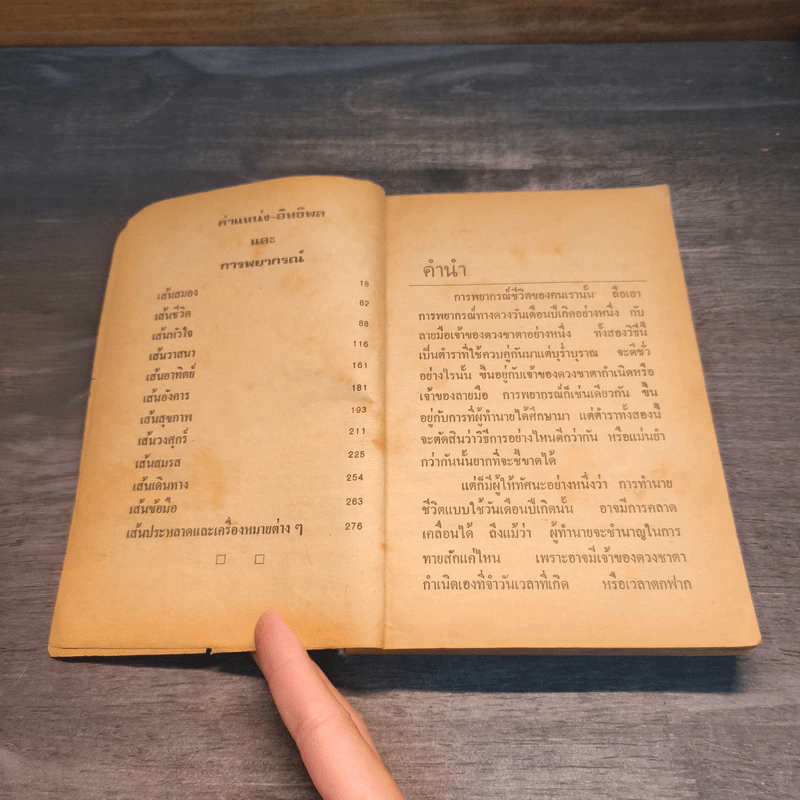 ตำแหน่ง-อิทธิพล
และ
การพยากรณ์
เส้นสมอง 18
เส้นชีวิต 62
เส้นหัวใจ 88
เส้นวาสนา 116
เส้นอาทิตย์ 161
เส้นอังคาร 181
เส้นสุขภาพ 193
เส้นวงศุกร์ 211
เส้นสมรส 225
เส้นเดินทาง 254
เส้นข้อมือ 263
เส้นประหลาดและเครื่องหมายต่าง ๆ 276
คำนำ
การพยากรณ์ชีวิตของคนเรานั้น ถือเอา
การพยากรณ์ทางดวงวันเดือนปีเกิดอย่างหนึ่ง กับ
ลายมือเจ้าของดวงชาตาอย่างหนึ่ง ทั้งสองวิธีนี้
เป็นตำราที่ใช้ควบคู่กันมาแต่บุร่ำบุราณ จะดีชั่ว
อย่างไรนั้น ขึ้นอยู่กับเจ้าของดวงชาตากำเนิดหรือ
เจ้าของลายมือ การพยากรณ์ก็เช่นเดียวกัน ขึ้น
อยู่กับการที่ผู้ทำนายได้ศึกษามา แต่ตำราทั้งสองนี้
จะตัดสินว่าวิธีการอย่างไหนดีกว่ากัน หรือแม่นยำ
กว่ากันนั้นยากที่จะชี้ขาดได้
แต่ก็มีผู้ให้ทัศนะอย่างหนึ่งว่า การทำนาย
ชีวิตแบบใช้วันเดือนปีเกิดนั้น อาจมีการคลาด
เคลื่อนได้ ถึงแม้ว่า ผู้ทำนายจะชำนาญในการ
ทายสักแค่ไหน เพราะอาจมีเจ้าของดวงชาตา
กำเนิดเองที่จำวันเวลาที่เกิด หรือเวลาตกฟาก